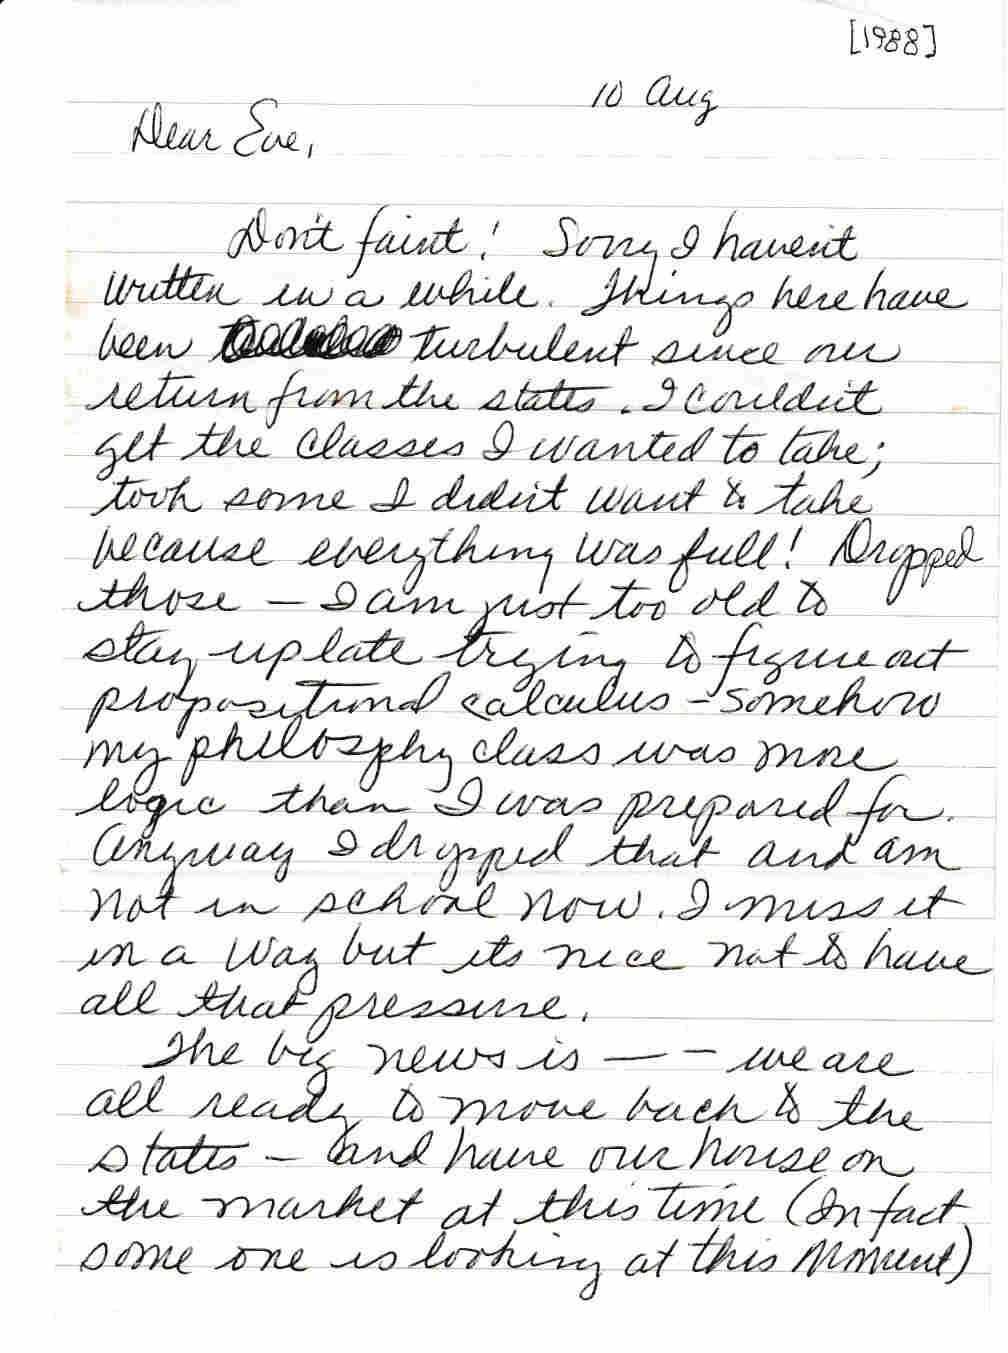 [1988]
10 Aug
Dear Eve,
Don't faint! Sorry I haven't
written in a while. Things here have
been turbulent since our
return from the states. I couldn't
get the classes I wanted to take;
took some I didn't want to take
because everything was full! Dropped
those — I am just too old to
stay up late trying to figure out
propositional calculus – somehow
my philosphy class was more
logic than I was prepared for.
Anyway I dropped that and am
not in school now. I miss it
in a way but its nice not to have
all that pressure.
The big news is — – we are
all ready to move back to the
states – and have our house on
the market at this time (In fact
some one is looking at this moment)